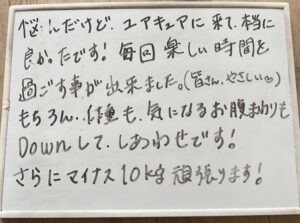 悩んだけど、ユアキュアに来て、本当に
良かったです！毎回楽しい時間を
過ごす事が出来ました。(皆さん、やさしい☺)
もちろん…体重も、気になるお腹まわりも
Downして、しあわせです！
さらにマイナス10kg頑張ります！